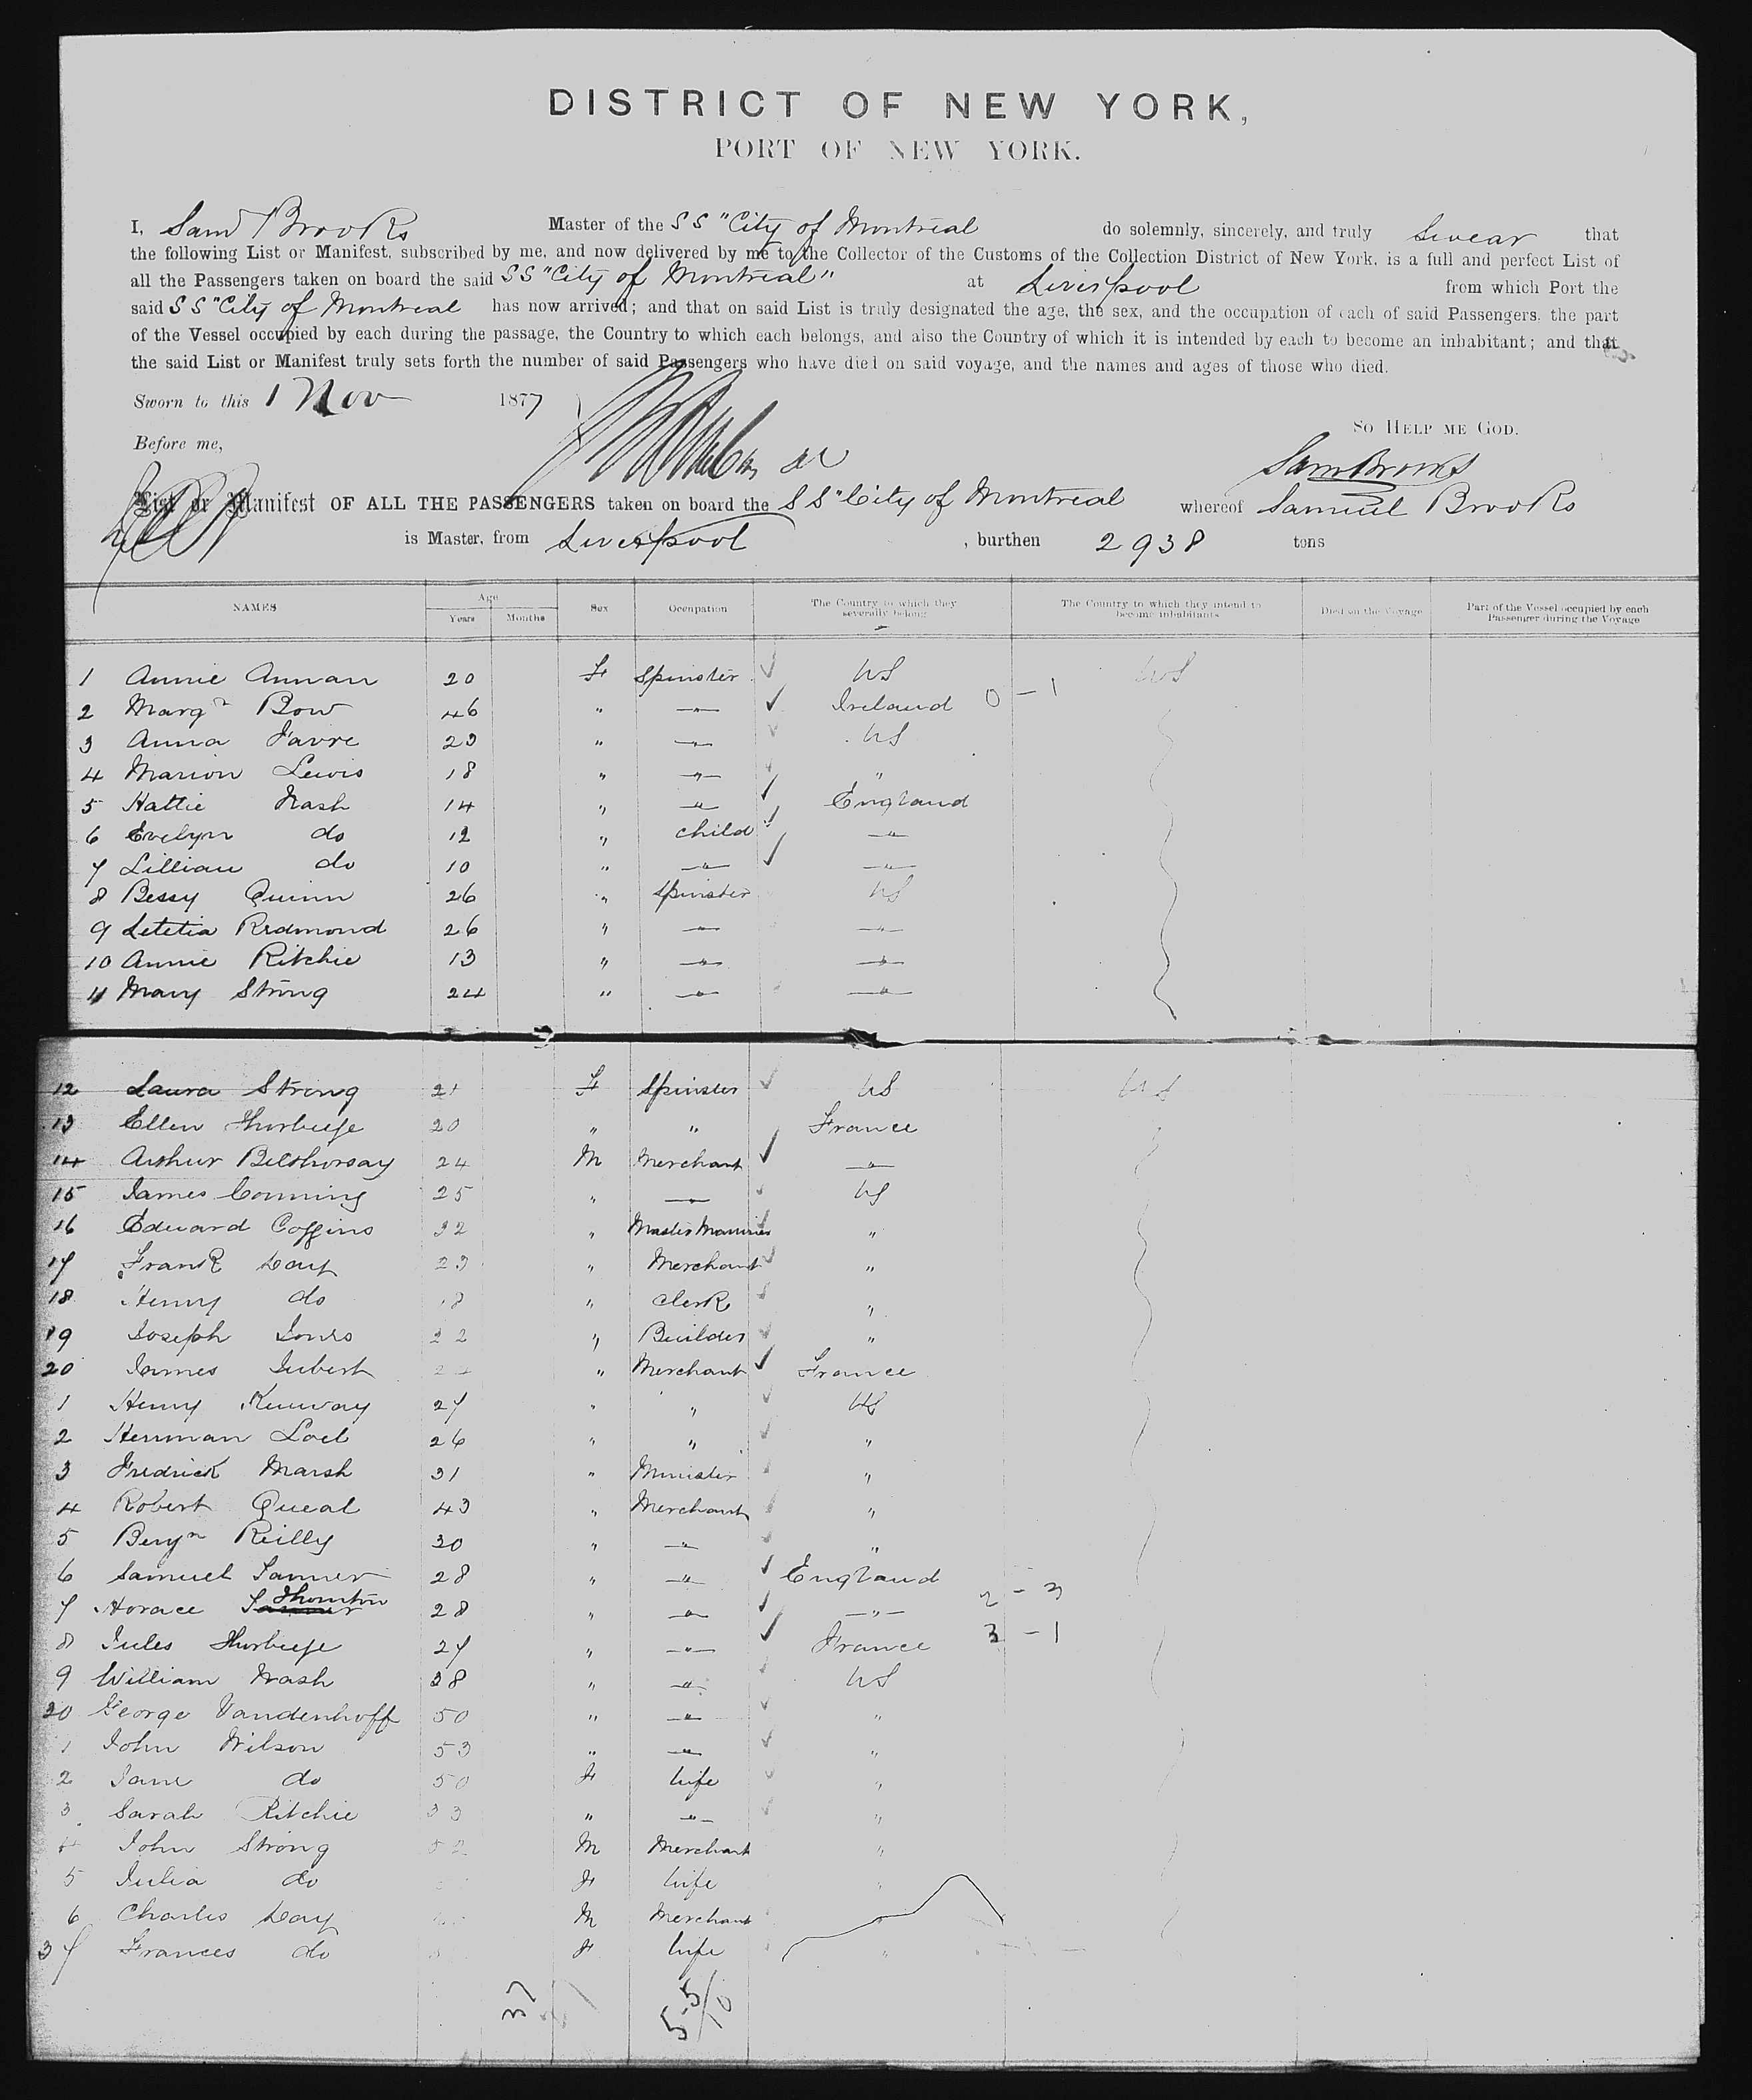 DISTRICT OF NEW YORK,
PORT OF NEW YORK.
I, Saml Brooks Master of the SS "City of Montreal do solemnly, sincerely, and truly Swear that
the following List or Manifest, subscribed by me, and now delivered by me to the Collector of the Customs of the Collection District of New York, is a full and perfect List of
all the Passengers taken on board the said SS "City of Montreal" at Liverpool from which Port the
said SS "City of Montreal has now arrived; and that on said List is truly designated the age, the sex, and the occupation of each of said Passengers, the part
of the Vessel occupied by each during the passage, the Country to which each belongs, and also the Country of which it is intended by each to become an inhabitant; and that
the said List or Manifest truly sets forth the number of said Passengers who have died on said voyage, and the names and ages of those who died.
Sworn to this 1 Nov 1877
So Help me God.
Before me,
Sam Brooks
List or Manifest OF ALL THE PASSENGERS taken on board the SS "City of Montreal whereof Samuel Brooks
is Master, from Liverpool, burthen 2938 tons
NAMES Age Years Months Sex Occupation The Country to which they severally belong The Country to which they intend to become inhabitants Died on the Voyage Part of the Vessel occupied by each Passenger during the Voyage
1 Annie Annan 20 F Spinster US US
2 Margt Bow 46 " " Ireland 0 - 1
3 Anna Favre 23 " " US
4 Marion Lewis 18 " " "
5 Hattie Nash 14 " " England
6 Evelyn do 12 " child "
7 Lillian do 10 " " "
8 Bessy Quinn 26 " Spinster US
9 Letetia Redmond 26 " " "
10 Annie Ritchie 13 " " "
11 Mary Strong 24 " " "
12 Laura Strong 21 F Spinster US US
13 Ellen 20 " " France
14 Arthur 24 M Merchant "
15 James Conning 25 " " US
16 Edward Coggins 32 " Master Mariner "
17 Frank Day 23 " Merchant "
18 Henry do 18 " Clerk "
19 Joseph Jones 22 " Builder "
20 James Jubert " Merchant France
1 Henry Kenway 27 " " US
2 Herrman Loeb 26 " " "
3 Fredrick Marsh 31 " Minister "
4 Robert Queal 43 " Merchant "
5 Benjn Reilly 30 " " "
6 Samuel Tanner 28 " " England
7 Horace Thornton 28 " " " 2 - 3
8 Jules 27 " " France 3 - 1
9 William Nash 38 " " US
30 George Vandenhoff 50 " " "
1 John Wilson 53 " " "
2 Jane do 50 F Wife "
3 Sarah Ritchie 33 " " "
4 John Strong 52 M Merchant "
5 Julia do F Wife "
6 Charles Day M Merchant
37 Frances do F Wife "
37 5-5/10